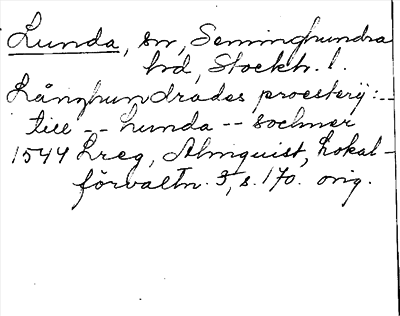 Lunda, sn, Seminghundra
hd, Stockh. l.
Långhundrades proesterij: --
till -- Lunda -- sochner
1544 Lreg, Almquist, Lokal-
förvaltn. 3, s. 170. orig.